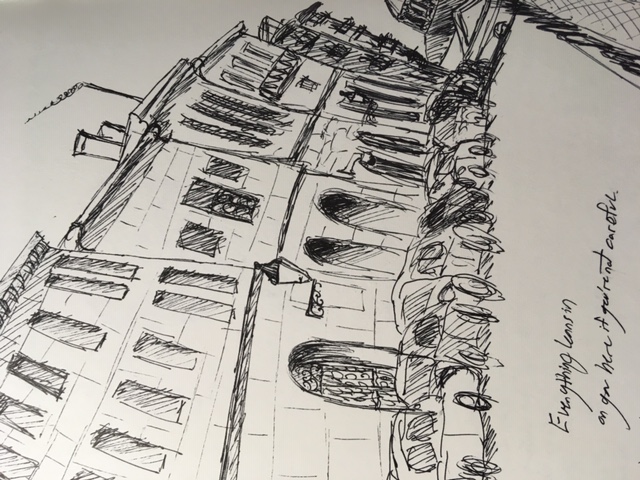 Everything leans in
on you here if you're not careful.